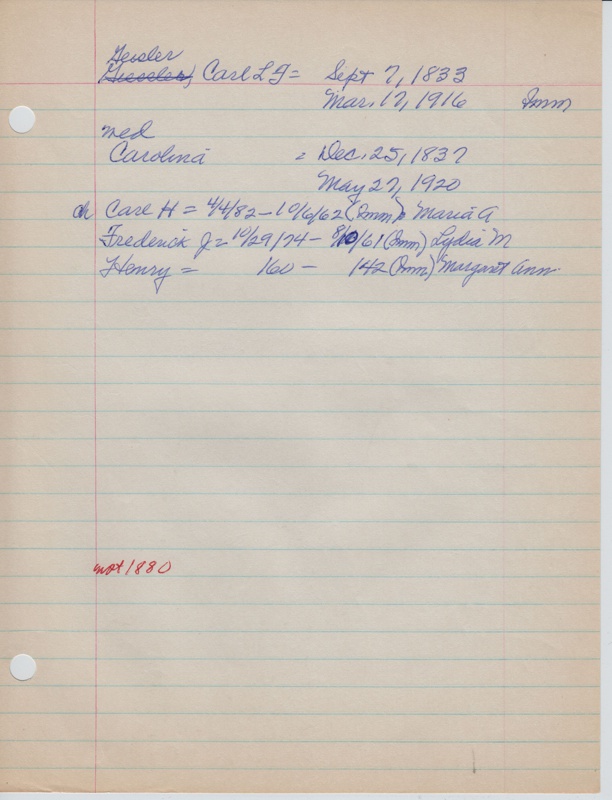 Geisler
Gieseler, Carl L F = Sept 7, 1833
Mar. 17, 1916 Imm
med
Carolina = Dec. 25, 1837
May 27, 1920
ch Carl H = 4/4/82 - 10/6/62 (Imm) Maria A
Frederick J = 10/29/74 - 8/10/61 (Imm) Lydia M
Henry = 160 - 142 (Imm) Margaret Ann
not 1880